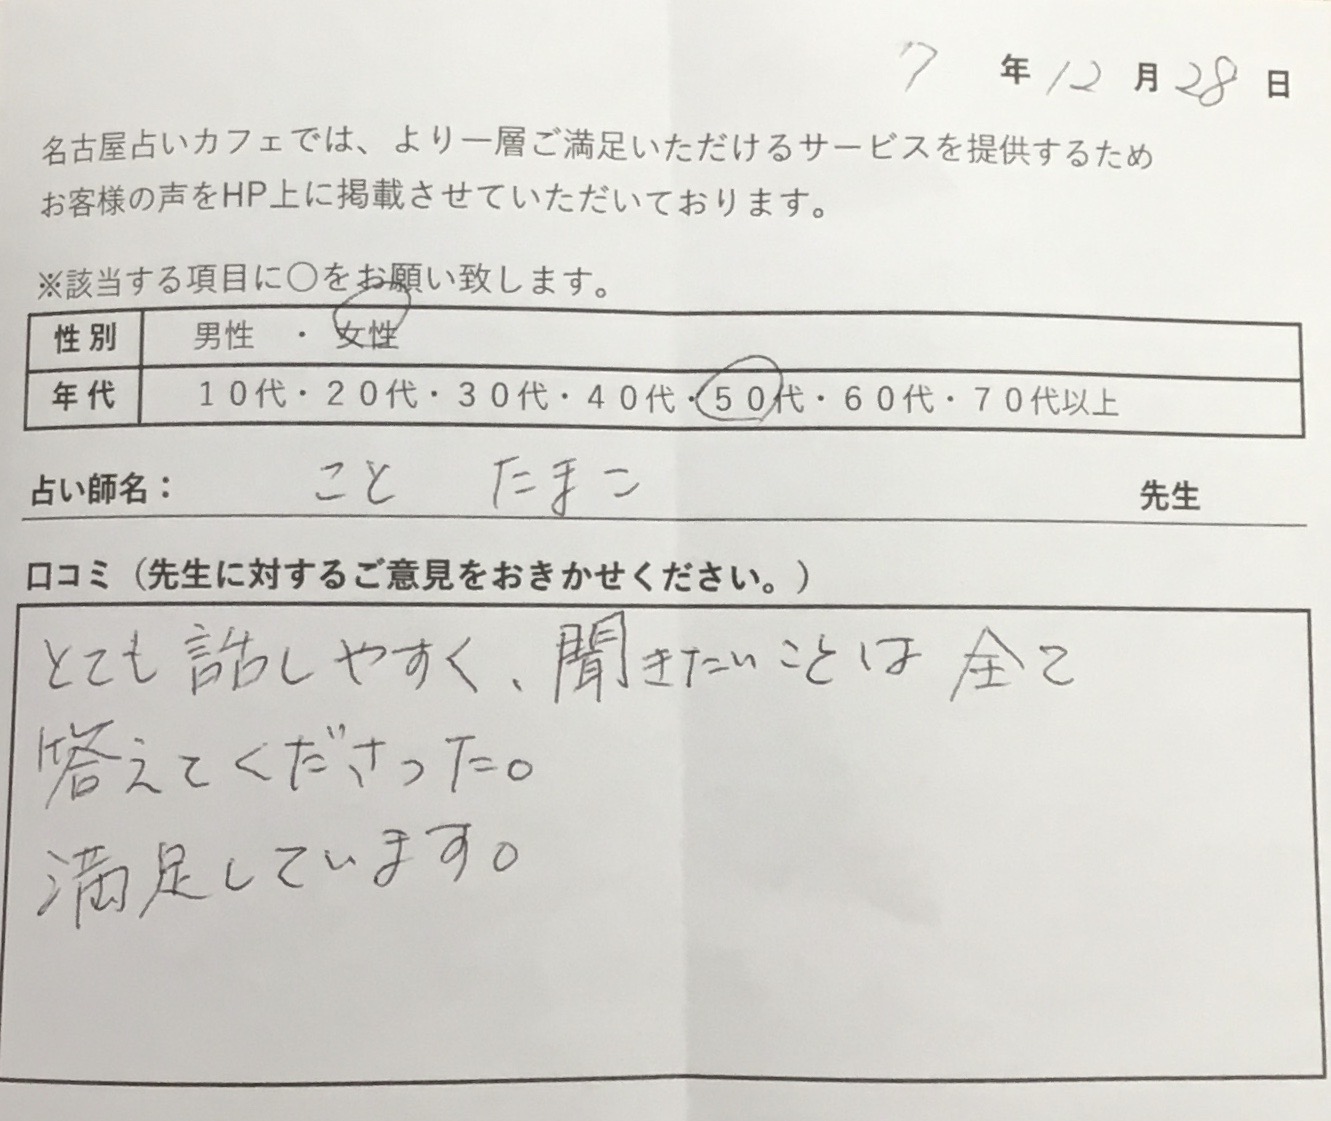 7 年 12 月 28 日
名古屋占いカフェでは、より一層ご満足いただけるサービスを提供するため
お客様の声をHP上に掲載させていただいております。
※該当する項目に〇をお願い致します。
性別 男性 ・ 女性
年代 10代・20代・30代・40代・50代・60代・70代以上
占い師名： こと たまこ 先生
口コミ（先生に対するご意見をおきかせください。）
とても話しやすく、聞きたいことは全て
答えてくださった。
満足しています。